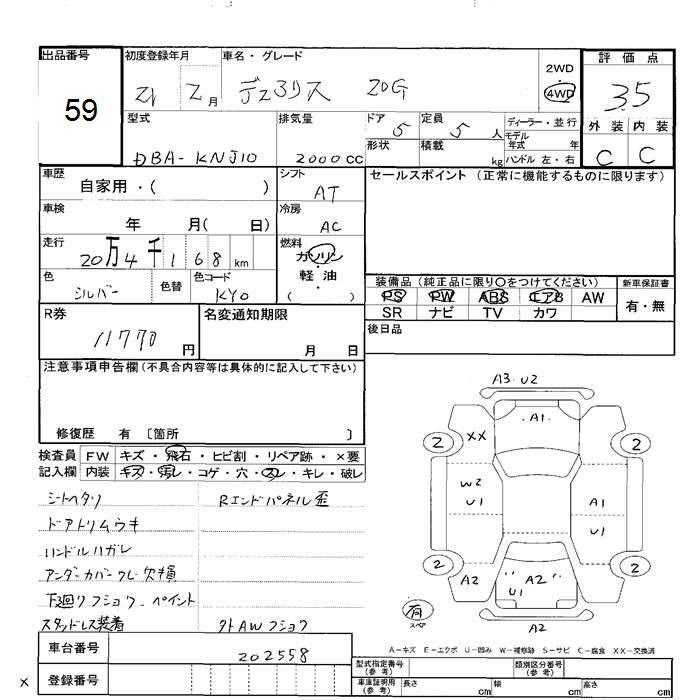 出品番号 初度登録年月 車名・グレード 2WD 評価点
59 21 2月 デュアリス 20G 4WD 3.5
型式 排気量 ドア 定員 ディーラー・並行 外装 内装
5 5人 モデル年式 年
DBA-KNJ10 2000CC 形状 積載 kg ハンドル 左・右 C C
車歴 シフト セールスポイント (正常に機能するものに限ります)
自家用・( ) AT
車検 冷房
年 月( 日) AC
走行 燃料
20万4千168km ガソリン
色 色替 色コード ・ 装備品(純正品に限り○をつけてください) 新車保証書
シルバー KY0 軽油 PS PW ABS エアB AW 有・無
( ) SR ナビ TV カワ
R券 名変通知期限 後日品
11770円 月 日
注意事項申告欄(不具合内容等は具体的に記入して下さい)
A3・U2
A1
XX
2 2
修復歴 有 〔箇所 〕
検査員 FW キズ・飛石・ヒビ割・リペア跡・×要
記入欄 内装 キズ・汚レ・コゲ・穴・スレ・キレ・破レ
W2 U1 A1 U1
シートヘタリ Rエンドパネル歪
ドアトリムウキ
ハンドルハガレ
アンダーカバーワレ・欠損 2 2
A2 U1 A2 A2
下廻りフショク・ペイント 有 スペア
スタッドレス装着 外AWフショク A2
車台番号 202558 A-キズ E-エクボ U-凹み W-補修跡 S-サビ C-腐食 XX-交換済
型式指定番号(参考) 類別区分番号(参考)
× 登録番号 車庫証明用(参考) 長さ cm 幅 cm 高さ cm